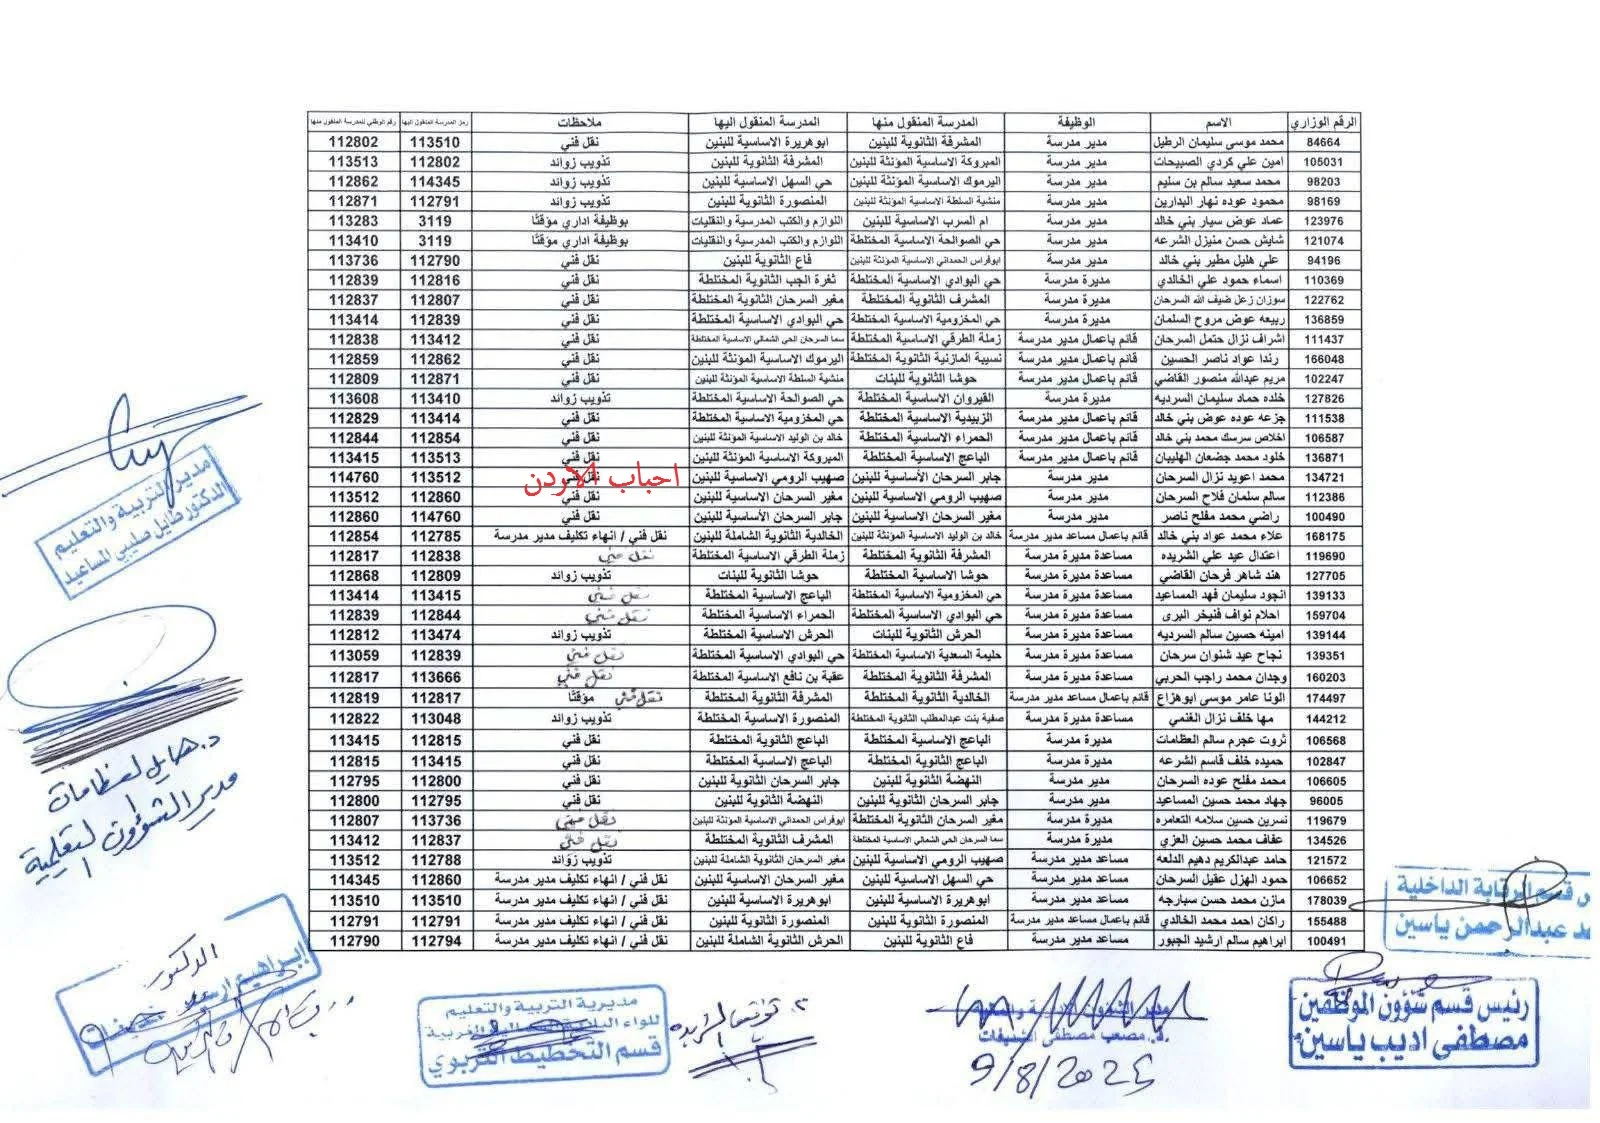 الرقم الوزاري الاسم الوظيفة المدرسة المنقول منها المدرسة المنقول اليها ملاحظات رمز المدرسة المنقول اليها رقم الوطني للمدرسة المنقول منها
84664 محمد موسى سليمان الرطيل مدير مدرسة المشرفة الثانوية للبنين ابوهريرة الاساسية للبنين نقل فني 113510 112802
105031 امين علي كردي الصبيحات مدير مدرسة المبروكة الاساسية المؤنثة للبنين المشرفة الثانوية للبنين تذويب زوائد 112802 113513
98203 محمد سعيد سالم بن سليم مدير مدرسة اليرموك الاساسية المؤنثة للبنين حي السهل الاساسية للبنين تذويب زوائد 114345 112862
98169 محمود عوده نهار البدارين مدير مدرسة منشية السلطة الاساسية المؤنثة للبنين المنصورة الثانوية للبنين تذويب زوائد 112791 112871
123976 عماد عوض سيار بني خالد مدير مدرسة ام السرب الاساسية للبنين اللوازم والكتب المدرسية والنقليات بوظيفة اداري مؤقتا 3119 113283
121074 شايش حسن منيزل الشرعه مدير مدرسة حي الصوالحة الاساسية المختلطة اللوازم والكتب المدرسية والنقليات بوظيفة اداري مؤقتا 3119 113410
94196 علي هليل مطير بني خالد مدير مدرسة ابوفراس الحمداني الاساسية المؤنثة للبنين فاع الثانوية للبنين نقل فني 112790 113736
110369 اسماء حمود علي الخالدي مديرة مدرسة حي البوادي الاساسية المختلطة ثغرة الجب الثانوية المختلطة نقل فني 112816 112839
122762 سوزان زعل ضيف الله السرحان مديرة مدرسة المشرف الثانوية المختلطة مغير السرحان الثانوية المختلطة نقل فني 112807 112837
136859 ربيعه عوض مروح السلمان مديرة مدرسة حي المخزومية الاساسية المختلطة حي البوادي الاساسية المختلطة نقل فني 112839 113414
111437 اشراف نزال حتمل السرحان قائم باعمال مدير مدرسة زملة الطرقي الاساسية المختلطة سما السرحان الحي الشمالي الاساسية المختلطة نقل فني 113412 112838
166048 رندا عواد ناصر الحسين قائم باعمال مدير مدرسة نسيبة المازنية الثانوية المختلطة اليرموك الاساسية المؤنثة للبنين نقل فني 112862 112859
102247 مريم عبدالله منصور القاضي قائم باعمال مدير مدرسة حوشا الثانوية للبنات منشية السلطة الاساسية المؤنثة للبنين نقل فني 112871 112809
127826 خلده حماد سليمان السرديه مديرة مدرسة القيروان الاساسية المختلطة حي الصوالحة الاساسية المختلطة تذويب زوائد 113410 113608
111538 جزعه عوده عوض بني خالد قائم باعمال مدير مدرسة الزبيدية الاساسية المختلطة حي المخزومية الاساسية المختلطة نقل فني 113414 112829
106587 اخلاص سرسك محمد بني خالد قائم باعمال مدير مدرسة الحمراء الاساسية المختلطة خالد بن الوليد الاساسية المؤنثة للبنين نقل فني 112854 112844
136871 خلود محمد جضعان الهليبان قائم باعمال مدير مدرسة الباعج الاساسية المختلطة المبروكة الاساسية المؤنثة للبنين نقل فني 113513 113415
134721 محمد اعويد نزال السرحان مدير مدرسة جابر السرحان الأساسية للبنين صهيب الرومي الاساسية للبنين نقل فني 113512 114760
احباب الاردن
112386 سالم سلمان فلاح السرحان مدير مدرسة صهيب الرومي الاساسية للبنين مغير السرحان الاساسية للبنين نقل فني 112860 113512
100490 راضي محمد مفلح ناصر مدير مدرسة مغير السرحان الاساسية للبنين جابر السرحان الأساسية للبنين نقل فني 114760 112860
168175 علاء محمد عواد بني خالد قائم باعمال مساعد مدير مدرسة خالد بن الوليد الاساسية المؤنثة للبنين الخالدية الثانوية الشاملة للبنين نقل فني / انهاء تكليف مدير مدرسة 112785 112854
119690 اعتدال عيد علي الشريده مساعدة مديرة مدرسة المشرفة الثانوية المختلطة زملة الطرقي الاساسية المختلطة نقل فني 112838 112817
127705 هند شاهر فرحان القاضي مساعدة مديرة مدرسة حوشا الاساسية المختلطة حوشا الثانوية للبنات تذويب زوائد 112809 112868
139133 انجود سليمان فهد المساعيد مساعدة مديرة مدرسة حي المخزومية الاساسية المختلطة الباعج الاساسية المختلطة نقل فني 113415 113414
159704 احلام نواف فنيخر البري مساعدة مديرة مدرسة حي البوادي الاساسية المختلطة الحمراء الاساسية المختلطة نقل فني 112844 112839
139144 امينه حسين سالم السرديه مساعدة مديرة مدرسة الحرش الثانوية للبنات الحرش الاساسية المختلطة تذويب زوائد 113474 112812
139351 نجاح عيد شنوان سرحان مساعدة مديرة مدرسة حليمة السعدية الاساسية المختلطة حي البوادي الاساسية المختلطة نقل فني 112839 113059
160203 وجدان محمد راجب الحربي مساعدة مديرة مدرسة المشرفة الثانوية المختلطة عقبة بن نافع الاساسية المختلطة نقل فني 113666 112817
174497 الونا عامر موسى ابوهزاع قائم باعمال مساعد مدير مدرسة الخالدية الثانوية المختلطة المشرفة الثانوية المختلطة نقل فني مؤقتا 112817 112819
144212 مها خلف نزال الغنمي مساعدة مديرة مدرسة صفية بنت عبدالمطلب الثانوية المختلطة المنصورة الاساسية المختلطة تذويب زوائد 113048 112822
106568 ثروت عجرم سالم العظامات مديرة مدرسة الباعج الاساسية المختلطة الباعج الثانوية المختلطة نقل فني 112815 113415
102847 حميده خلف قاسم الشرعه مديرة مدرسة الباعج الثانوية المختلطة الباعج الاساسية المختلطة نقل فني 113415 112815
106605 محمد مفلح عوده السرحان مدير مدرسة النهضة الثانوية للبنين جابر السرحان الثانوية للبنين نقل فني 112800 112795
96005 جهاد محمد حسين المساعيد مدير مدرسة جابر السرحان الثانوية للبنين النهضة الثانوية للبنين نقل فني 112795 112800
119679 نسرين حسين سلامه التعامره مساعدة مديرة مدرسة مغير السرحان الثانوية المختلطة ابوفراس الحمداني الاساسية المؤنثة للبنين نقل فني 113736 112807
134526 عفاف محمد حسين العزي مساعدة مديرة مدرسة سما السرحان الحي الشمالي الاساسية المختلطة المشرف الثانوية المختلطة نقل فني 112837 113412
121572 حامد عبدالكريم دهيم الدلعه مساعد مدير مدرسة صهيب الرومي الاساسية للبنين مغير السرحان الثانوية الشاملة للبنين تذويب زوائد 112788 113512
106652 حمود الهزل عقيل السرحان مساعد مدير مدرسة حي السهل الاساسية للبنين مغير السرحان الاساسية للبنين نقل فني / انهاء تكليف مدير مدرسة 112860 114345
178039 مازن محمد حسن سبارجه مساعد مدير مدرسة ابوهريرة الاساسية للبنين ابوهريرة الاساسية للبنين نقل فني / انهاء تكليف مدير مدرسة 113510 113510
155488 راكان احمد محمد الخالدي قائم باعمال مساعد مدير مدرسة المنصورة الثانوية للبنين المنصورة الثانوية للبنين نقل فني / انهاء تكليف مدير مدرسة 112791 112791
100491 ابراهيم سالم ارشيد الجبور مساعد مدير مدرسة فاع الثانوية للبنين الحرش الثانوية الشاملة للبنين نقل فني / انهاء تكليف مدير مدرسة 112794 112790
مدير التربية والتعليم
الدكتور طايل صليبي المساعيد
د. هايل العظامات
مدير الشؤون التعليمية
قسم الرقابة الداخلية
عبدالرحمن ياسين
رئيس قسم شؤون الموظفين
مصطفى اديب ياسين
مدير الشؤون الادارية والمالية
د. مصعب مصطفى
9/8/2025
مديرية التربية والتعليم
للواء البادية الشمالية الغربية
قسم التخطيط التربوي
الدكتور
ابراهيم